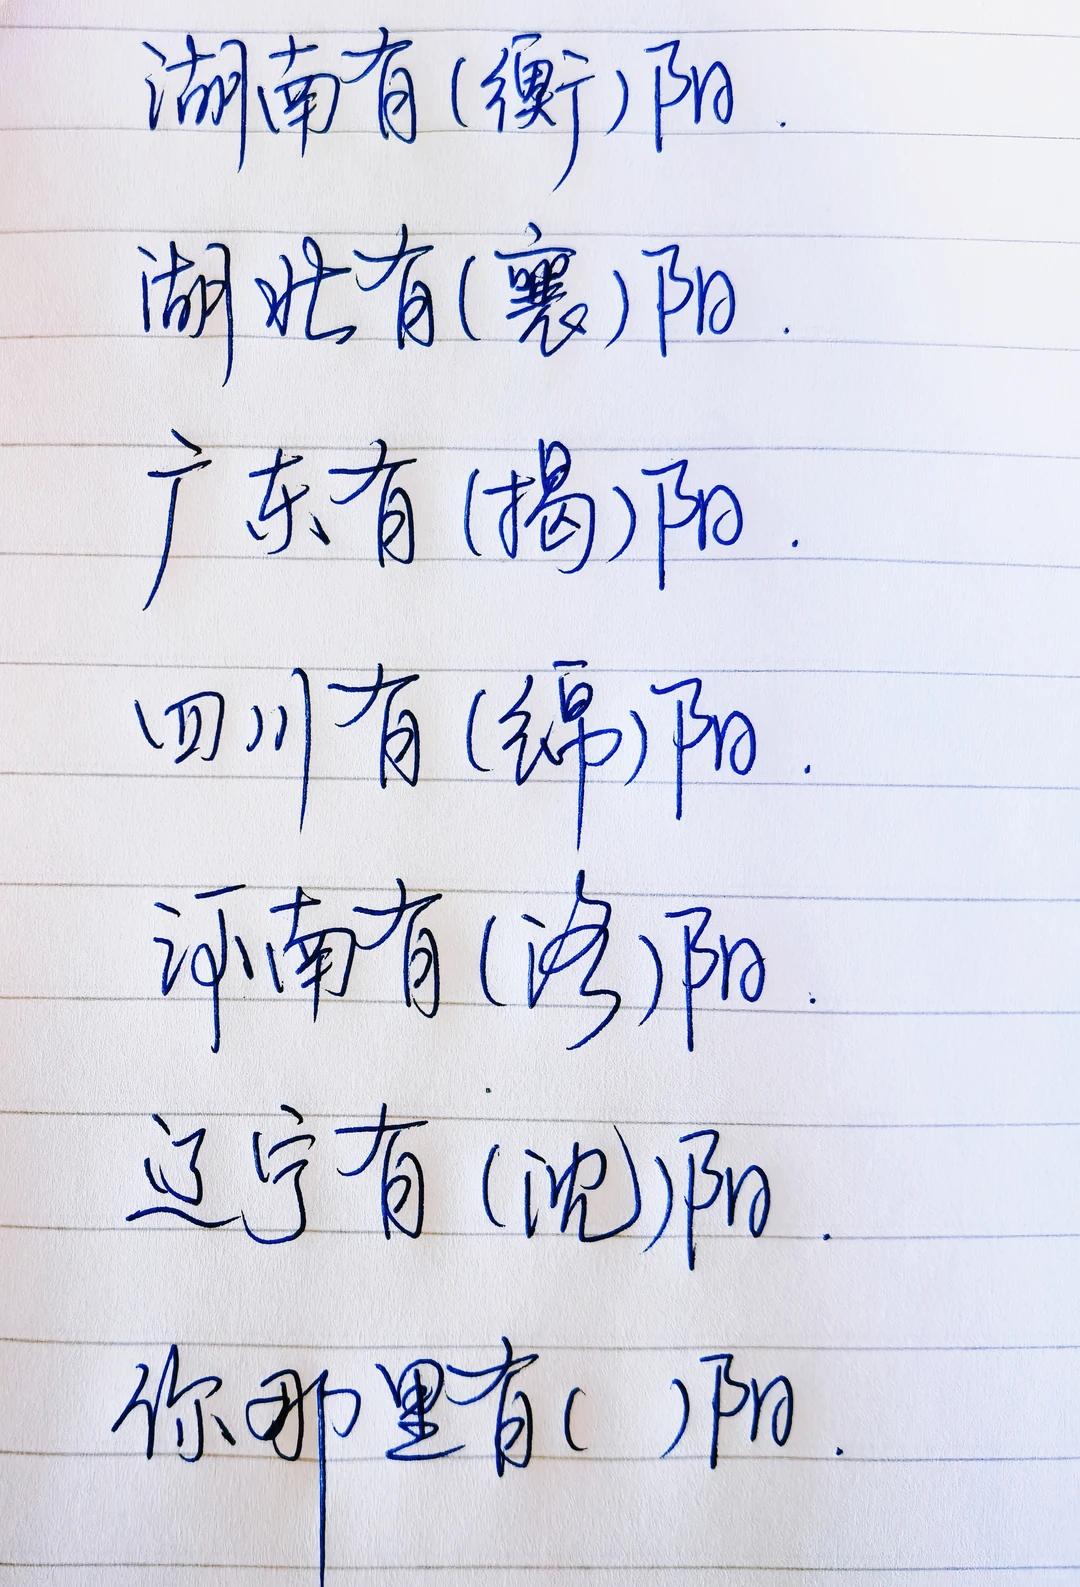 湖南有(衡)阳.
湖北有(襄)阳.
广东有(揭)阳.
四川有(绵)阳.
河南有(洛)阳.
辽宁有(沈)阳.
你那里有( )阳.